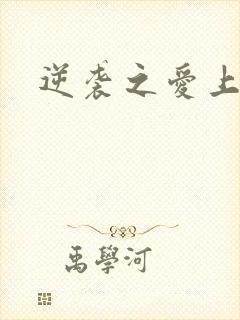 逆袭之爱上
禹學河